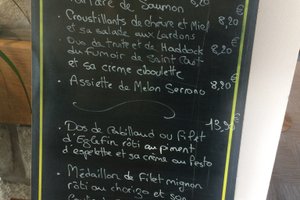 Tartare de Saumon 8,20
Croustillants de chèvre et Miel 8,20€
et sa salade aux lardons
Duo de truite et de Haddock 8,20€
du fumoir de Saint Cast
et sa creme ciboulette
• Assiette de Melon Serrano 8,20€
• Dos de Cabillaud ou Filet 13,90€
d'Eglefin rôti au piment
d'espelette et sa crème au Pesto
• Médaillon de Filet mignon
rôti au chorizo et son